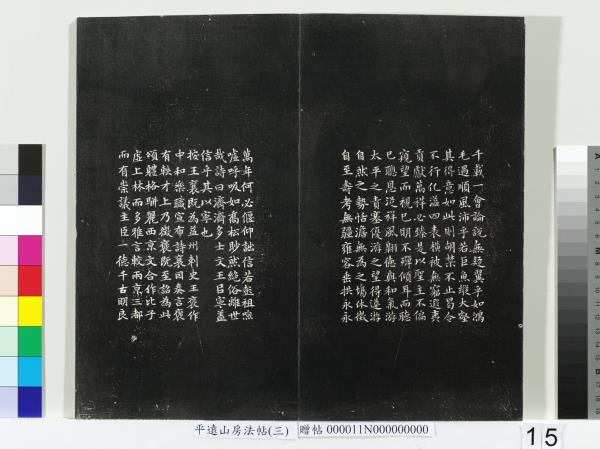 千載一會論說無疑翼乎如鴻
毛遇順風沛乎若巨魚縱大壑
其得意如此則胡禁不止曷令
不行化溢四表橫被無窮遐夷
貢獻萬祥必臻是以聖主不徧
窺望而視已明不殫傾耳而聽
已聰恩從祥風翱德與和氣游
太平之責塞優游之望得遵游
自然之勢恬澹無為之場休徵
自至壽考無疆雍容垂拱永永
萬年何必偃仰詘信若彭祖呴
噓呼吸如喬松眇然絕俗離世
哉詩曰濟濟多士文王以寧蓋
信乎其以寧也
按王襄既為益州刺史王褒作
中和樂職宣布詩襄因奏言褒
有軼才上乃徵褒既至詔為此
頌體格駢麗西京文合作比于
虛上林而多雅言較兩京三都
而有崇議主臣一德千古明良
平遠山房法帖(三)
贈帖 000011N000000000
15